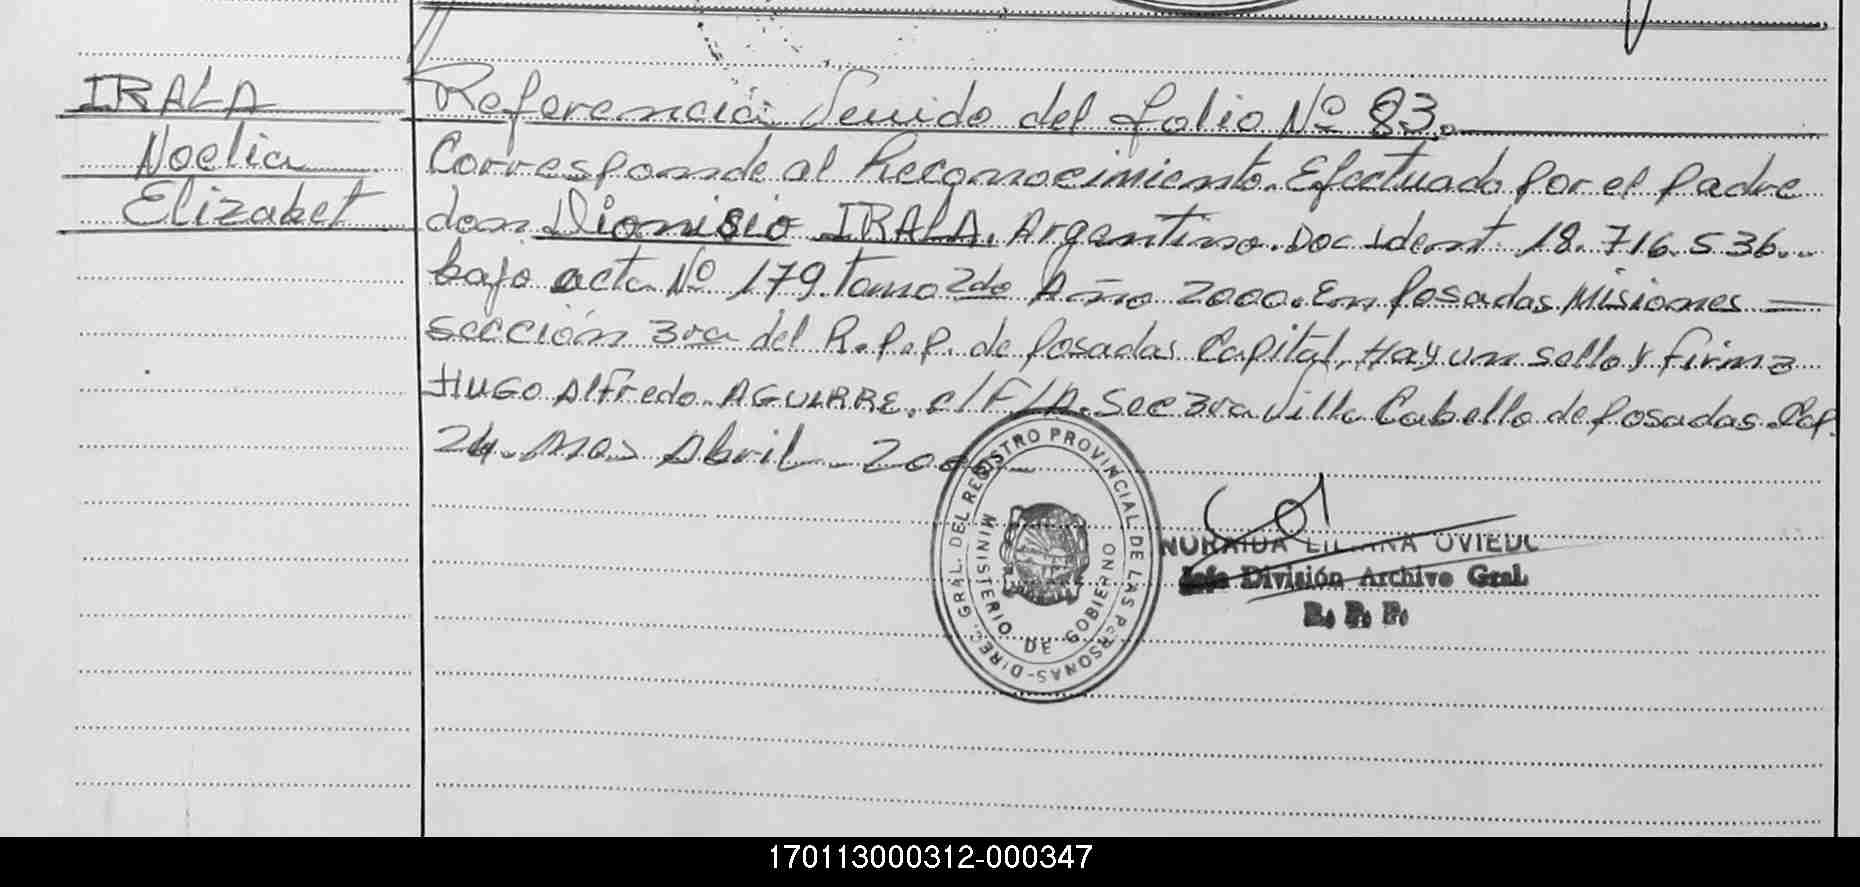 IRALA
Noelia
Elizabet
Referencia Seuido del folio Nº 83.
Corresponde al Reconocimiento. Efectuado por el padre
don Dionisio IRALA. Argentino. Doc Ident. 18.716.536.
bajo acta Nº 179. tomo 2do Año 2000. En Posadas Misiones =
sección 3ra del R.P.P. de Posadas Capital. Hay un sello y firma
HUGO Alfredo AGUIRRE. c/F/D. Sec 3ra Villa Cabello de Posadas. Cap.
24. Abril
DIREC. GRAL. DEL REGISTRO PROVINCIAL DE LAS PERSONAS
MINISTERIO DE GOBIERNO
NORAIDA LILIANA OVIEDO
Jefe División Archivo Gral.
R. P. P.
170113000312-000347